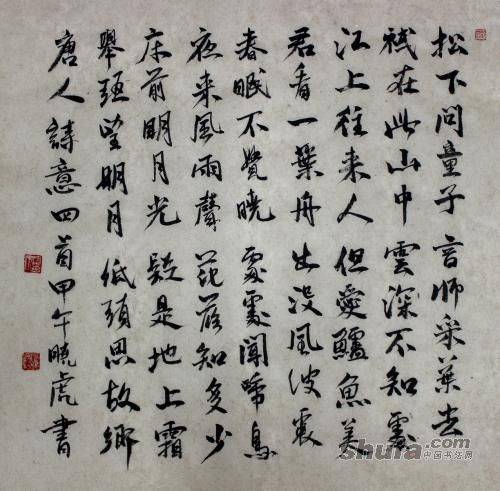 松下问童子言師采葉去
祇在此山中雲深不知處
江上往来人但愛鱸魚美
君看一葉舟出没風波裏
春眠不覺曉處處聞啼鳥
夜来風雨聲花落知多少
床前明月光疑是地上霜
舉頭望明月低頭思故鄉
唐人詩意四首甲午曉虎書
shufa.com
中国书法网